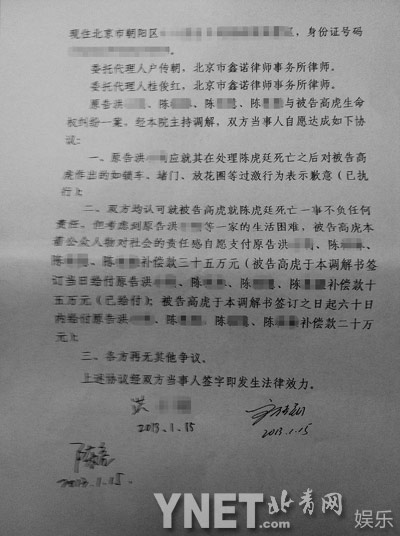 现住北京市朝阳区
，身份证号码
。
委托代理人户传朝，北京市鑫诺律师事务所律师。
委托代理人桂俊红，北京市鑫诺律师事务所律师。
原告洪 、陈 、陈 、陈 与被告高虎生命
权纠纷一案，经本院主持调解，双方当事人自愿达成如下协
议：
一、原告洪 应就其在处理陈虎廷死亡之后对被告高
虎作出的如锁车、堵门、放花圈等过激行为表示歉意（已执
行）；
二、双方均认可就被告高虎就陈虎廷死亡一事不负任何
责任。但考虑到原告洪 等一家的生活困难，被告高虎本
着公众人物对社会的责任感自愿支付原告洪 、陈 、
陈 、陈 补偿款三十五万元（被告高虎于本调解书签
订当日给付原告洪 、陈 、陈 、陈 补偿款十
五万元（已给付）；被告高虎于本调解书签订之日起六十日
内给付原告洪 、陈 、陈 、陈 补偿款二十万
元）；
三、各方再无其他争议。
上述协议经双方当事人签字即发生法律效力。
洪
2013.1.15
2013.1.15
2013.1.15.
YNET.com 北青网
娱乐